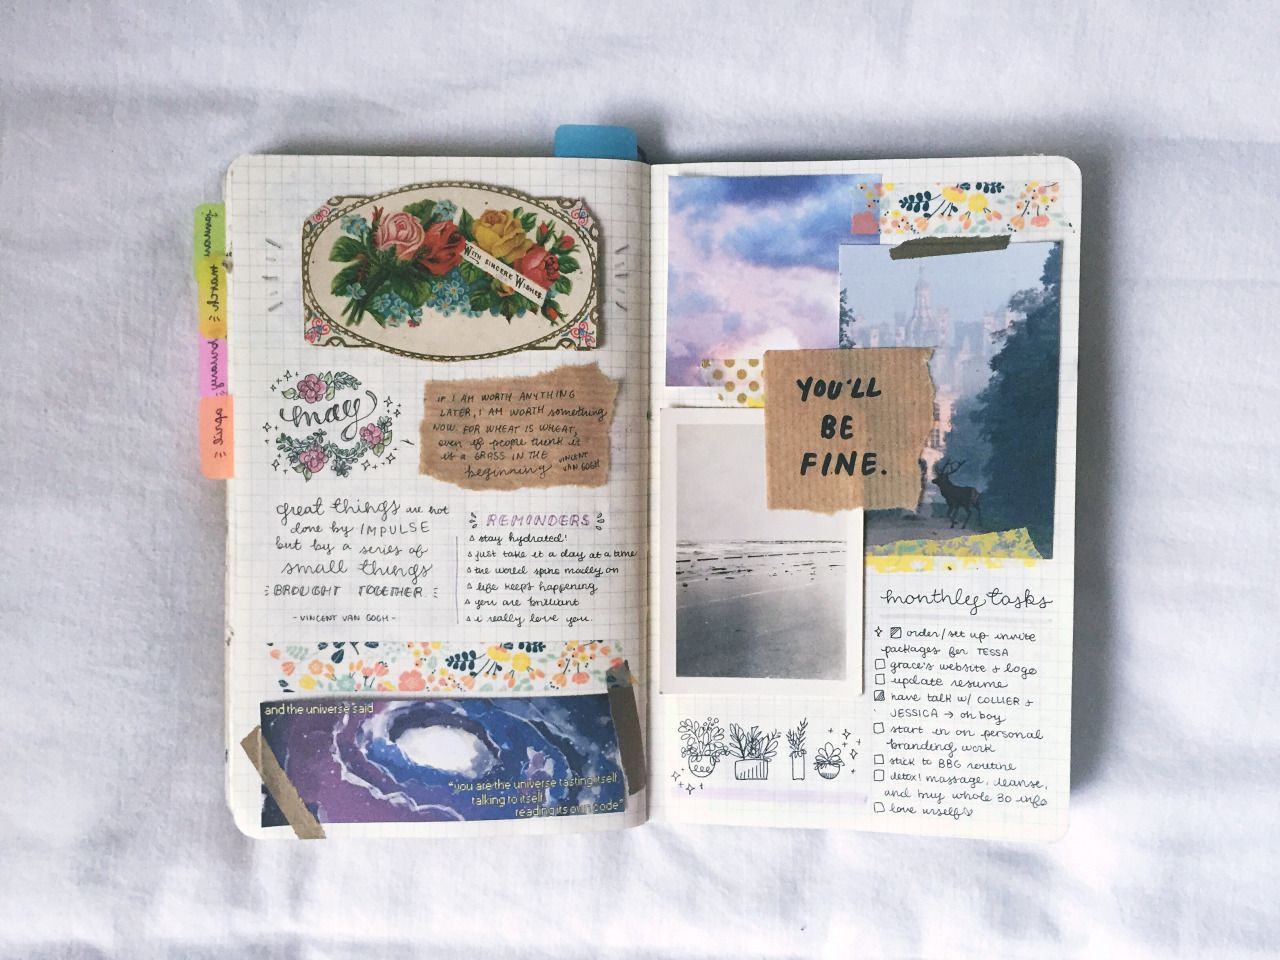 WITH SINCERE WISHES.
may
IF I AM WORTH ANYTHING
LATER, I AM WORTH something
NOW. FOR WHEAT IS WHEAT,
even if people think it
is a GRASS IN THE
beginning VINCENT
VAN GOGH
great things are not
done by IMPULSE
but by a series of
small things
BROUGHT TOGETHER.
-VINCENT VAN GOGH-
REMINDERS
stay hydrated!
just take it a day at a time
the world spins madly on
life keeps happening
you are brilliant
i really love you.
and the universe said
"you are the universe tasting itself
talking to itself
reading its own code"
YOU'LL
BE
FINE.
monthly tasks
order/set up invite
packages for TESSA
grace's website + logo
update resume
have talk w/ COLLIER +
JESSICA → oh boy
start in on personal
branding work
stick to BBG routine
detox! massage, cleanse,
and buy whole 30 info
love urself